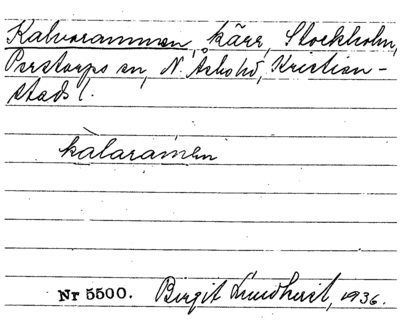 Kalvarammen, kärr, Stockholm,
Perstorps sn, N. Åsbo hd, Kristian-
stads l.
kàlaramen
Nr 5500. Birgit Lundkvist, 1936.